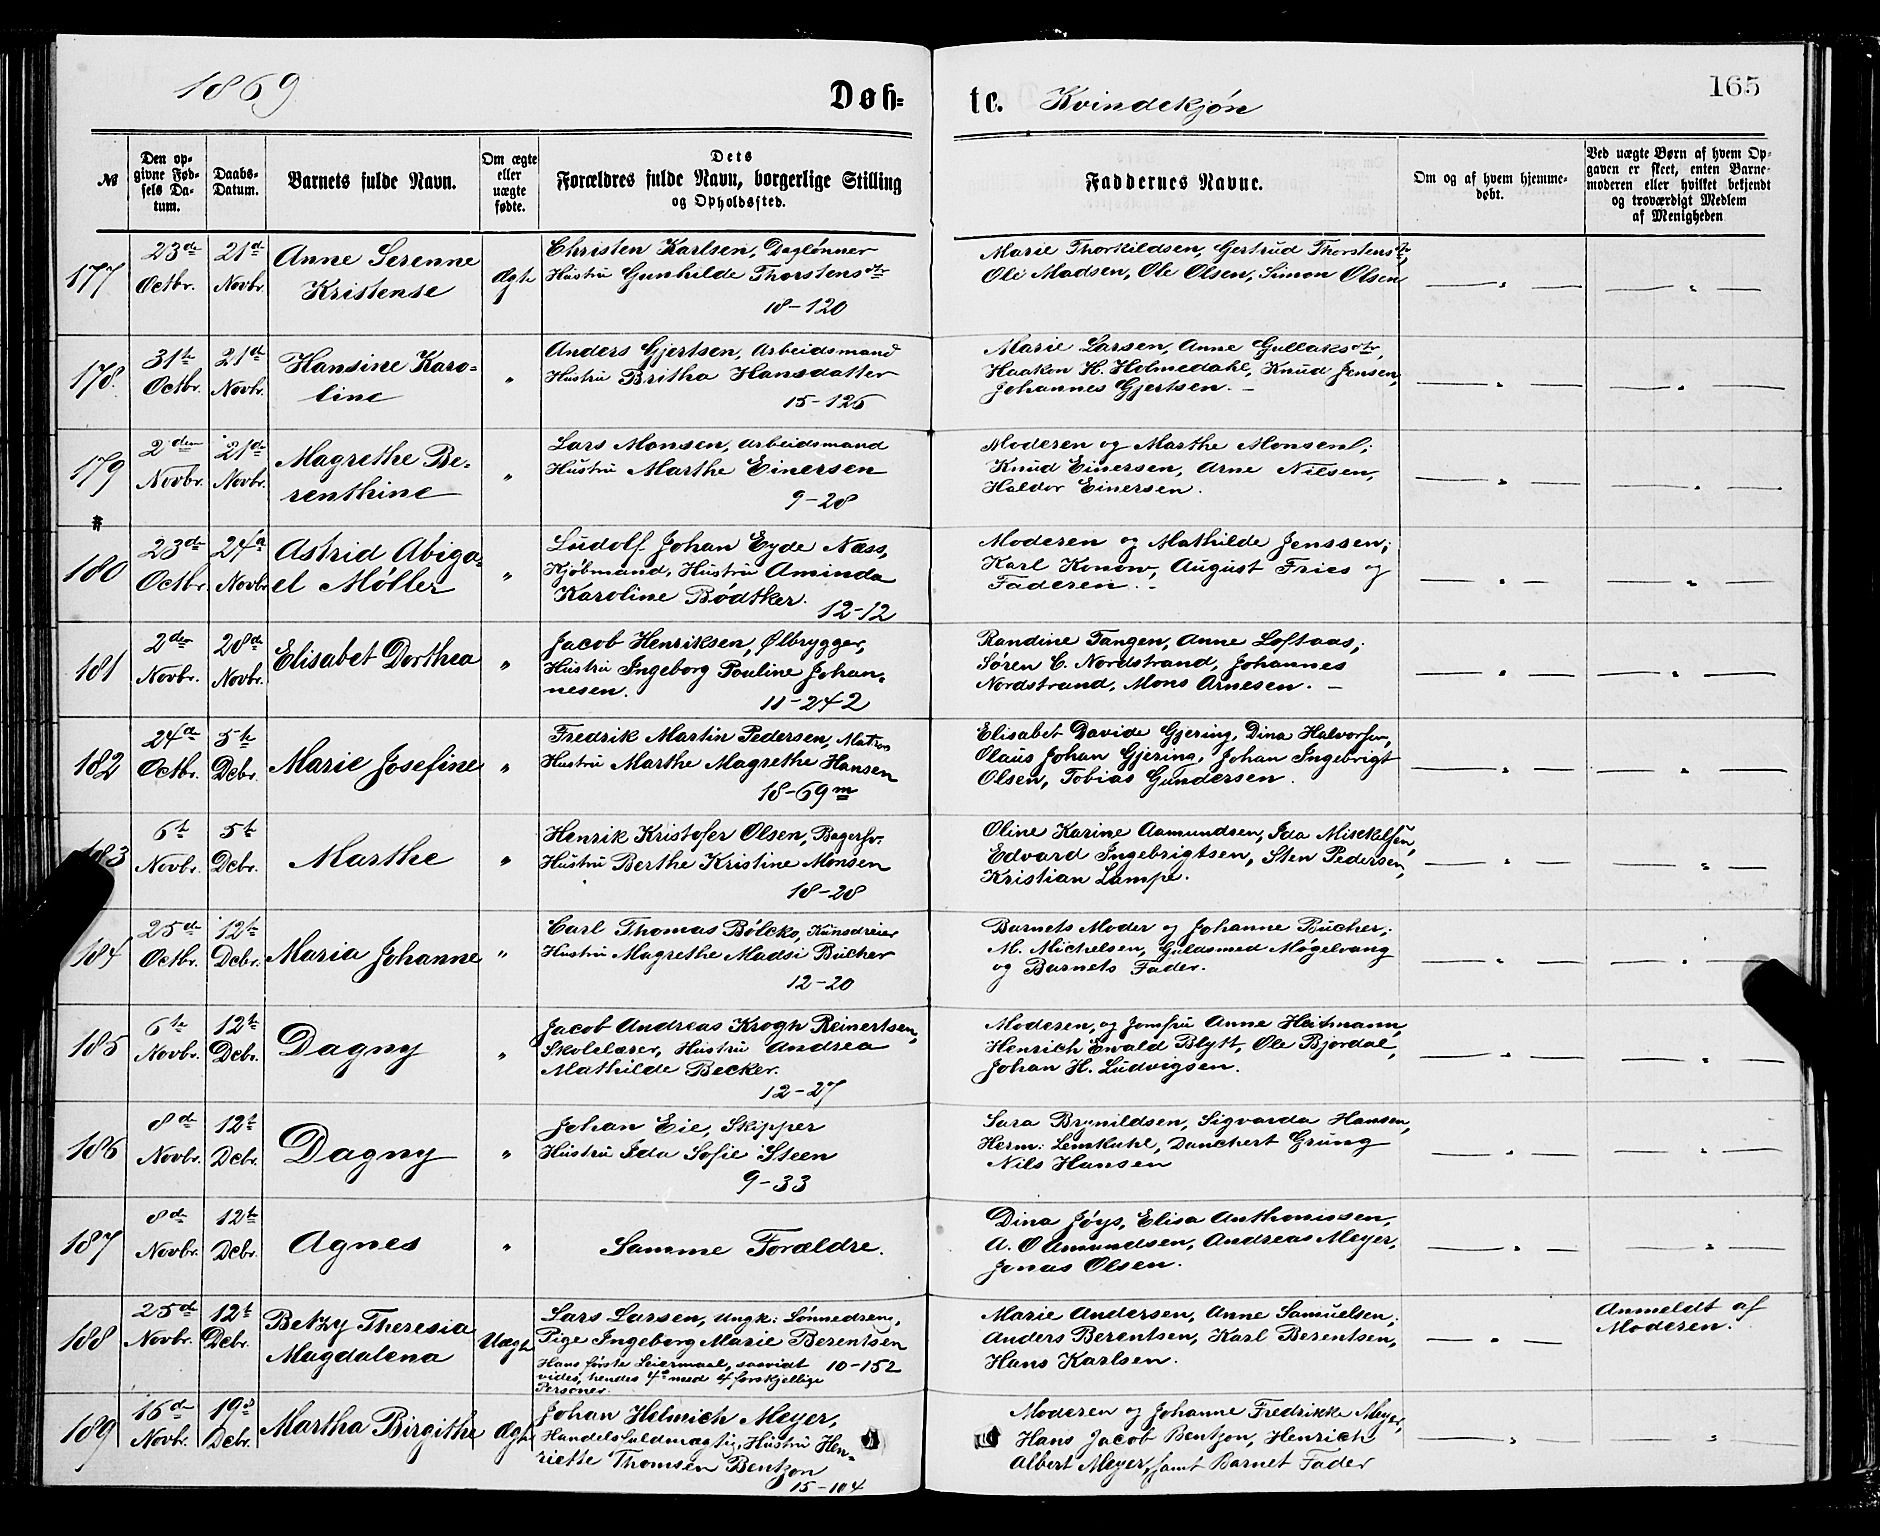 1869
Døb-
te. Kvindekjøn
165
№
Den op-
givne Fød-
sels Da-
tum.
Daabs-
Datum.
Barnets fulde Navn.
Om ægte
eller
uægte
fødte.
Dets
Forældres fulde Navn, borgerlige Stilling
og Opholdssted.
Faddernes Navne.
Om og af hvem hjemme-
døbt.
Ved uægte Børn af hvem Op-
gaven er skeet, enten Barne-
moderen eller hvilket bekjendt
og troværdigt Medlem
af Menigheden
177
23de
Octbr.
21de
Novbr.
Anne Serenne
Kristense
Ægte
Christen Karlsen, Daglønner
Hustru Gunhilde Thorstensdtr
18-120
Marie Thorkildsen, Gertrud Thorstensdtr,
Ole Madsen, Ole Olsen, Simon Olsen
178.
31te
Octbr.
21de
Novbr.
Hansine Karo-
line
"
Anders Gjertsen, Arbeidsmand
Hustru Britha Hansdatter
15-126
Marie Larsen, Anne Gullaksdtr,
Haakon H. Holmedahl, Knud Jensen,
Johannes Gjertsen. -
179
2den
Novbr.
21de
Novbr.
Magrethe Be-
renthine
"
Lars Monsen, Arbeidsmand
Hustru Marthe Einersen
9-28
Moderen og Marthe Monsen;
Knud Einersen, Arne Nilsen,
Haldor Einersen.
#
180
23de
Octbr.
24de
Novbr.
Astrid Abiga-
el Møller
"
Ludolf Johan Eyde Næss,
Kjøbmand, Hustru Aminda
Karoline Bødtker.
12-12
Moderen og Mathilde Jenssen;
Karl Konow, August Fries og
Faderen. -
181
2den
Novbr.
28de
Novbr.
Elisabet Dorthea
"
Jacob Henriksen, Ølbrygger,
Hustru Ingeborg Pouline Johan-
nesen.
11-242
Randine Tangen, Anne Loftaas;
Søren C. Nordstrand, Johannes
Nordstrand, Mons Arnesen. -
182
24de
Octbr.
5te
Dcbr.
Marie Josefine
"
Fredrik Martin Pedersen, Matros
Hustru Marthe Magrethe Hansen
18-69m
Elisabet Davide Gjering, Dina Halvorsen,
Olaus Johan Gjering, Johan Ingebrigt
Olsen, Tobias Gundersen.
183
6te
Novbr.
5te
Dcbr.
Marthe
"
Henrik Kristofer Olsen, Bagersv.
Hustru Berthe Kristine Monsen
18-28
Oline Karine Aamundsen, Ida Mickelsen,
Edvard Ingebrigtsen, Sten Pedersen,
Kristian Lampe.
184
25de
Octbr.
12te
Dcbr.
Maria Johanne
"
Carl Thomas Bölcko, Kunsdreier
Hustru Magrethe Madsi Bücher
12-20
Barnets Moder og Johanne Bücher;
M. Michelsen, Guldsmed Møgelvang
og Barnets Fader.
185
6te
Novbr.
12te
Dcbr.
Dagny
"
Jacob Andreas Krogh Reinertsen,
Skolelærer, Hustru Andrea
Mathilde Becker.
12-27
Moderen, og Jomfru Anne Heitmann,
Henrich Ewald Blytt, Ole Bjordal,
Johan H. Ludvigsen.
186
8de
Novbr.
12te
Dcbr.
Dagny
"
Johan Eie, Skipper
Hustru Ida Sofie Steen
9-33
Sara Brynildsen, Sigvarda Hansen,
Herm: Lemkuhl, Danchert Grung
Nils Hansen
187
8de
Novbr.
12te
Dcbr.
Agnes
"
Samme Forældre.
Dina Jøys, Elisa Anthonissen,
A. O Amundsen, Andreas Meyer,
Jonas Olsen.
188
25de
Novbr.
12te
Dcbr.
Betzy Theresia
Magdalena
Uægte
Lars Larsen, Ungk: Lønnedreng,
Pige Ingeborg Marie Berentsen
Hans første Leiermaal, saavidt 10-152
vides, hendes 4de med 4 forskjellige
Personer.
Marie Andersen, Anne Samuelsen;
Anders Berentsen, Karl Berentsen,
Hans Karlsen.
Anmeldt af
Moderen.
189
16de
Novbr.
19de
Dcbr.
Martha Birgithe
Ægte
Johan Helmich Meyer,
Handelsfuldmægtig, Hustru Hen-
riette Thomsen Bentzon
15-104
Moderen og Johanne Fredrikke Meyer,
Hans Jacob Bentzon, Henrich
Albert Meyer, samt Barnet Fader